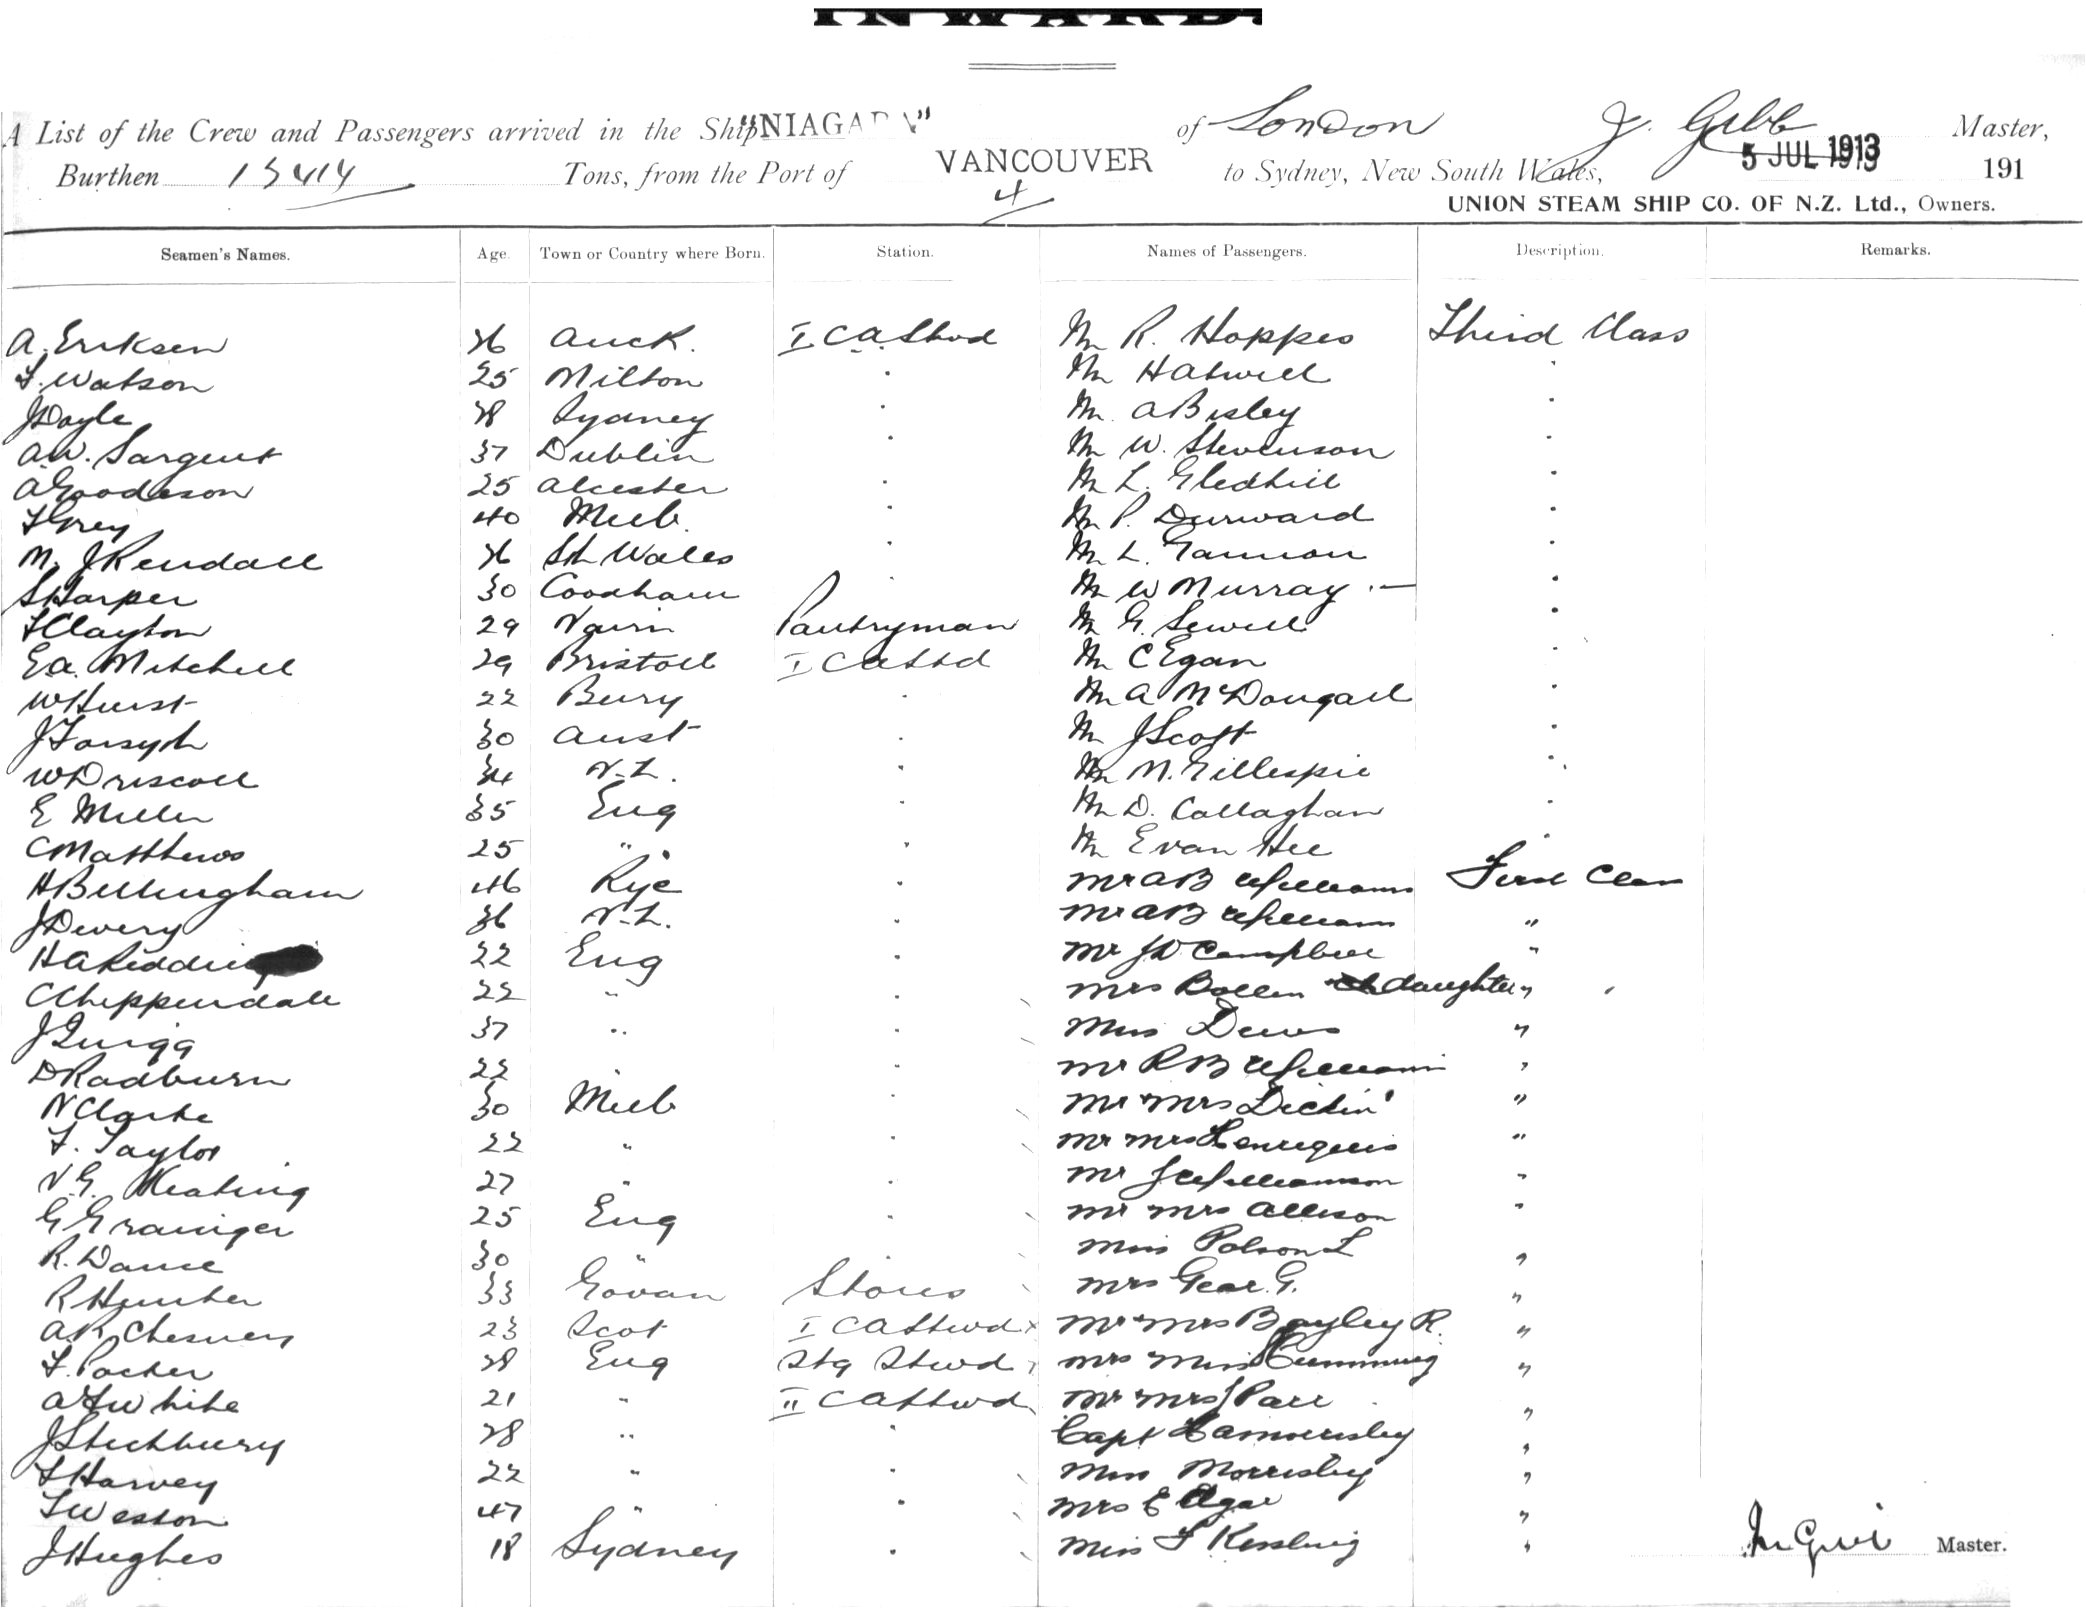 INWARDS.
A List of the Crew and Passengers arrived in the Ship "NIAGARA" of London J. Gibb Master,
Burthen 13414 Tons, from the Port of VANCOUVER to Sydney, New South Wales, 5 JUL 1913 191
4
UNION STEAM SHIP CO. OF N.Z. Ltd., Owners.
Seamen's Names. Age. Town or Country where Born. Station. Names of Passengers. Description. Remarks.
A. Eriksen 26 Auck. I CA Stwd Mr R. Hoppes Third Class
F. Watson 25 Milton " Mr Hatwell "
J Doyle 28 Sydney " Mr A Bisley "
A.W. Sargent 37 Dublin " Mr W. Stevenson "
A Goodeson 25 Alcester " Mr L. Gledhill "
F Grey 40 Melb. " Mr P. Durward "
M. J Kendall 26 Sth Wales " Mr L. Gannon "
S Harper 30 Coodham " Mr W Murray "
F Clayton 29 Nairn Pantryman Mr G. Sewell "
E.A. Mitchell 29 Bristoll I CA Std Mr C Egan "
W Hurst 22 Bury " Mr A McDougall "
J Forsyth 30 Aust " Mr J Scott "
W Driscoll 34 N.Z. " Mr M. Gillespie "
E Miller 35 Eng " Mr D. Callaghan "
C Matthews 25 " " Mr Evan Hee "
H Billingham 46 Rye " Mr A B Williams First Class
J Devery 36 N.Z. " Mr A B Williams "
H A Reddin 22 Eng " Mr J D Campbell "
C Chippendale 22 " " Mrs Bollen daughter "
J Quigg 37 " " Miss Dews "
D Radburn 22 " " Mr R B Williams "
N Clarke 30 Melb " Mr Mrs Dickin "
F. Taylor 22 " " Mr Mrs Henriques "
N.G. Keating 27 " " Mr J Williamson "
G Grainger 25 Eng " Mr Mrs Allison "
R. Dance 30 " " Miss Polson L "
R Hunter 33 Govan Stores Mrs Gear. G. "
A.R Chesney 23 Scot I CA Stwd Mr Mrs Bayley R. "
F. Pocher 28 Eng Stg Stwd Mrs Miss Cumming "
A F White 21 " II CA Stwd Mr Mrs J Parr "
J Stechbury 28 " " Capt "
F Harvey 22 " " Miss Morrisby "
F Weston 47 " " Mrs E Agar "
J Hughes 18 Sydney " Miss F Kessling " Master.